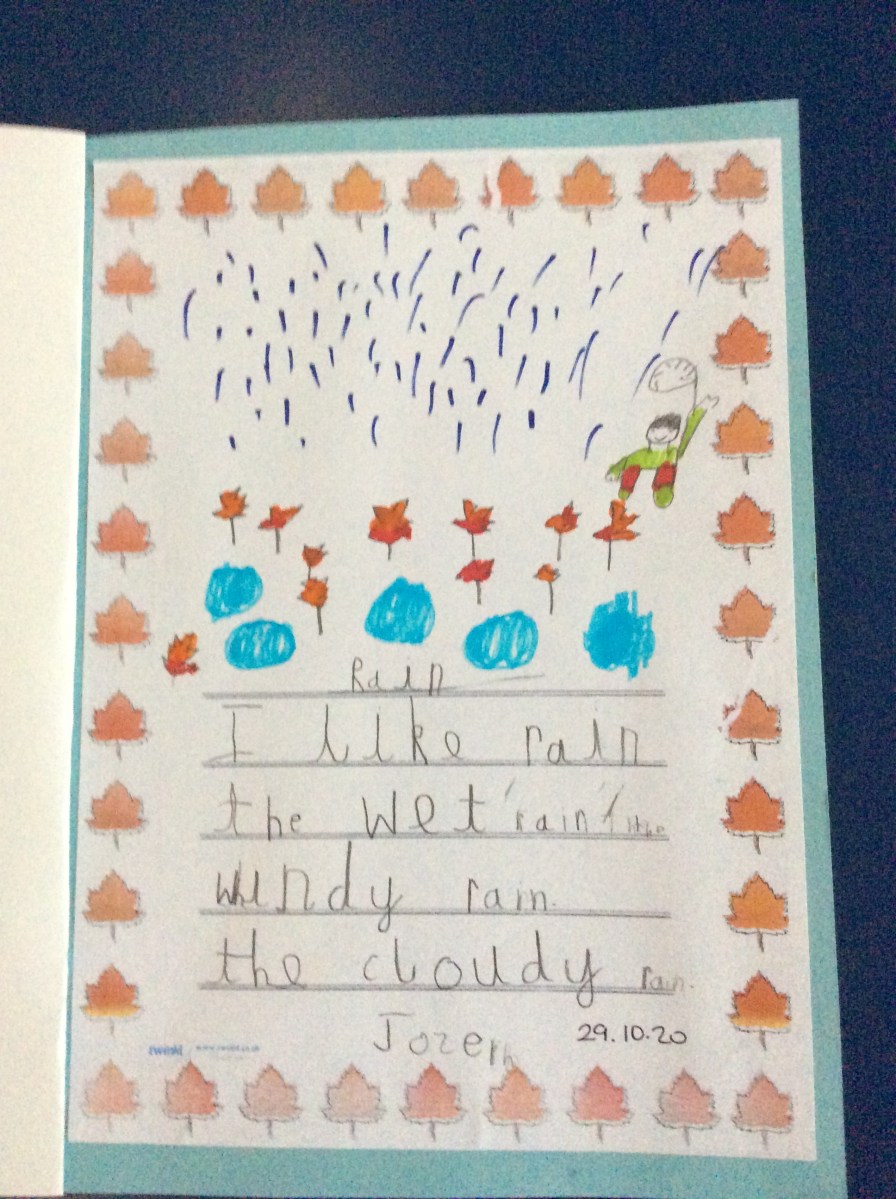 Rain
I like rain
the wet rain the
windy rain.
the cloudy rain.
Jozeph 29.10.20
twinkl www.twinkl.co.uk